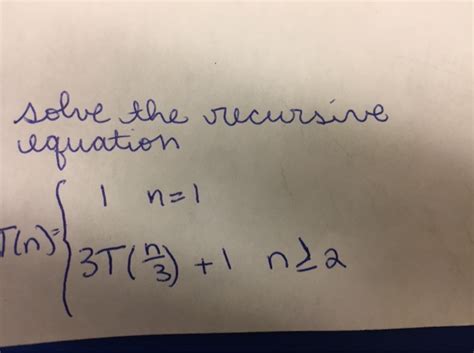 solve the recursive
equation
T(n)= { 1 n=1
3T(n/3) + 1 n≥2